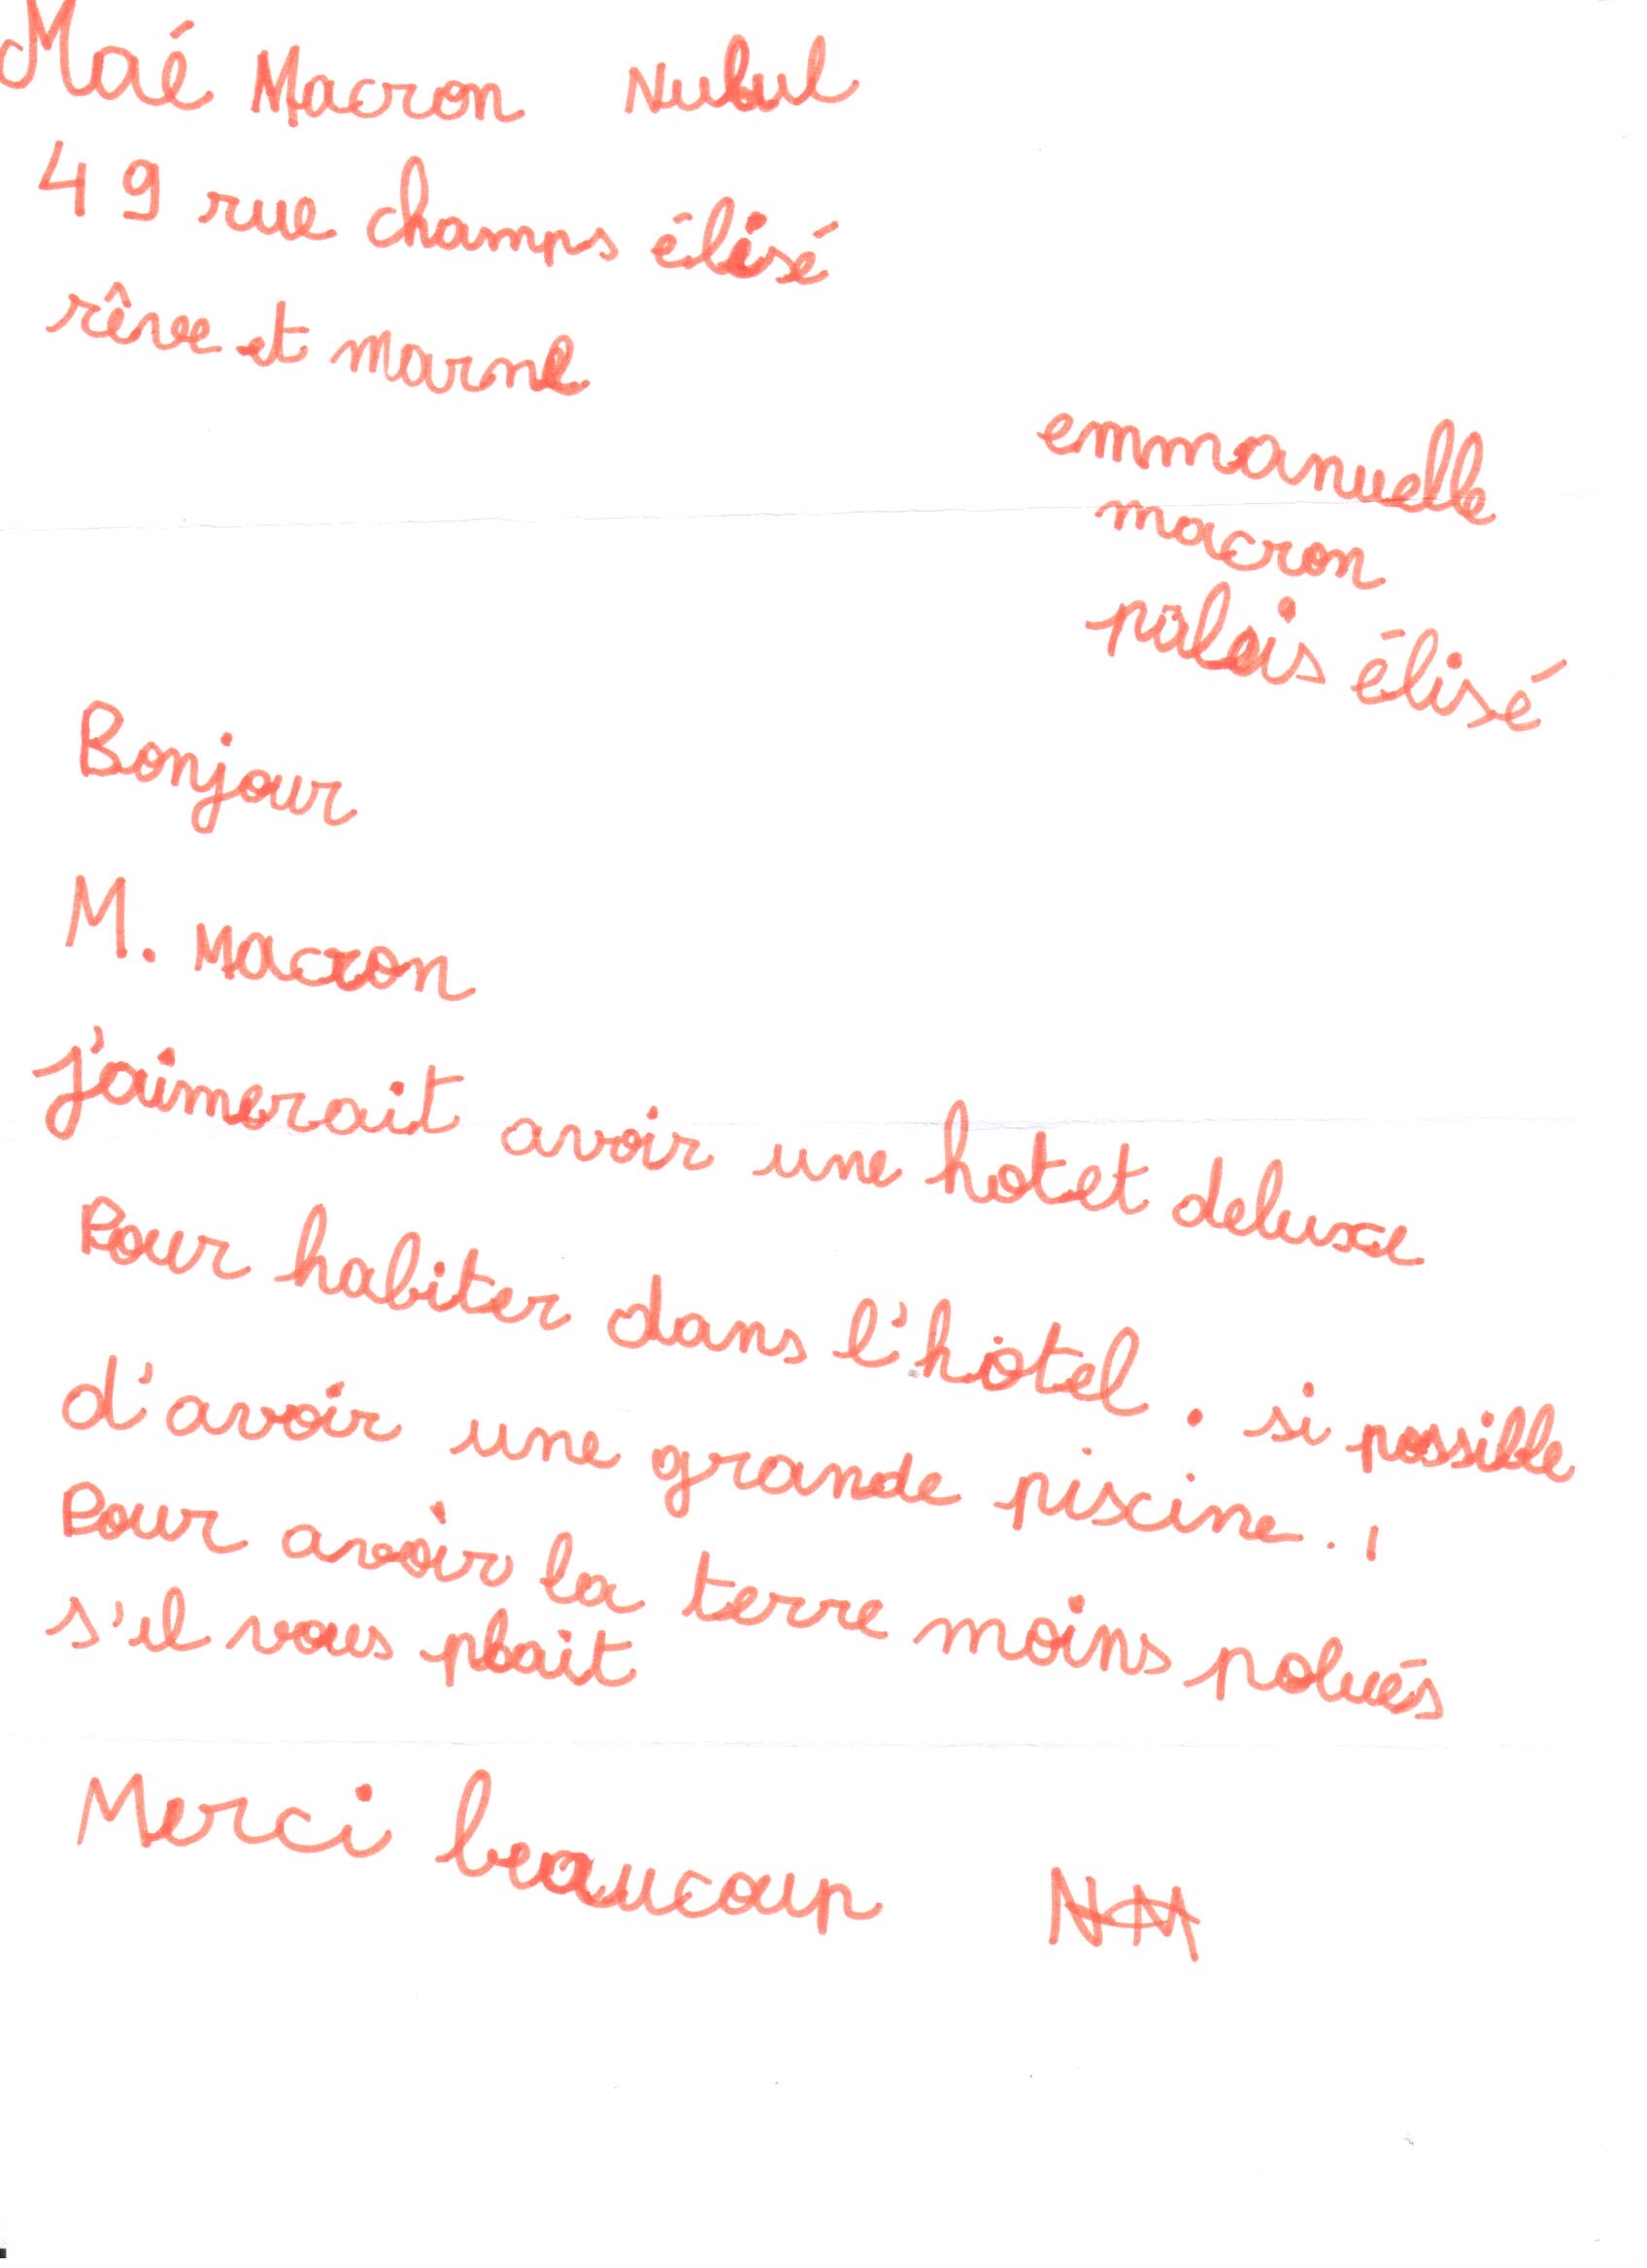 Maé Macron Nubul
49 rue champs élisé
rêve et marne
emmanuelle
macron
palais élisé
Bonjour
M. Macron
j'aimerait avoir une hotet deluxe
Pour habiter dans l'hôtel. si possible
d'avoir une grande piscine. ,
Pour avoir la terre moins polués
s'il vous plaît
Merci beaucoup NM